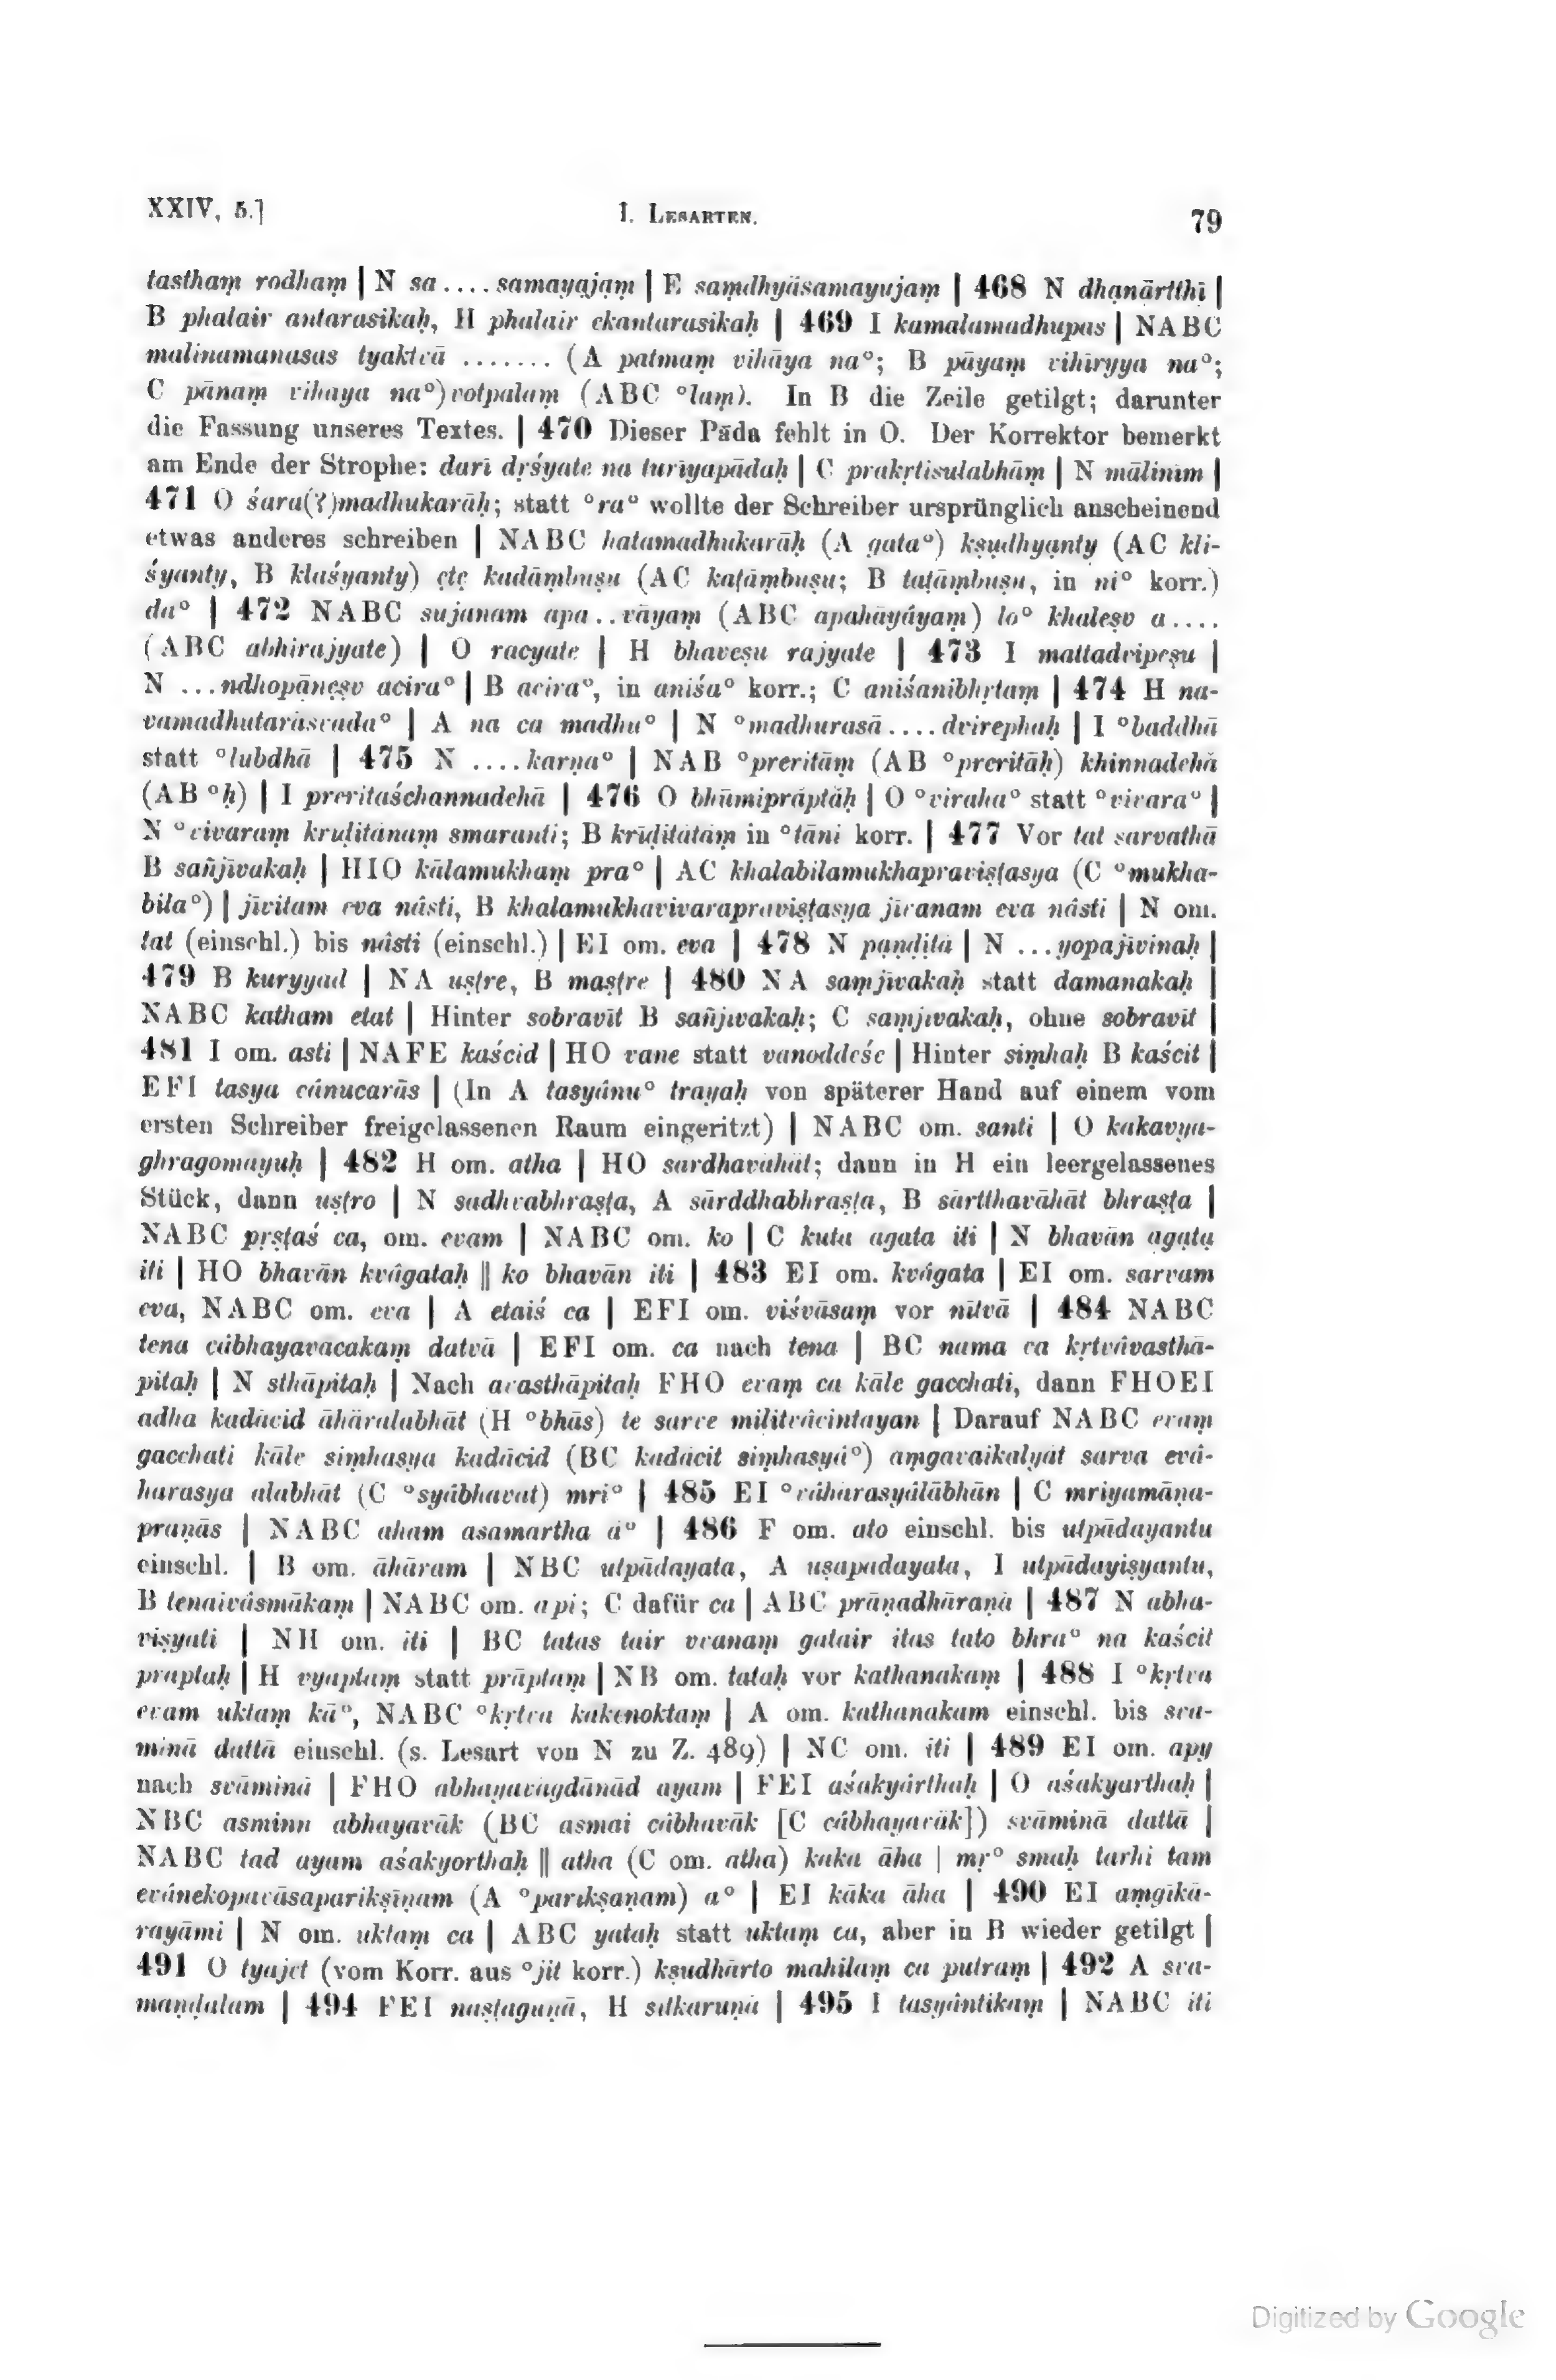 XXIV, 5.] I. Lesarten. 79
tasthaṃ rodhaṃ | N sa .... samayajaṃ | E saṃdhyāsamayujaṃ | 468 N dhanārtthī |
B phalair antarasikaḥ, H phalair ekantarasikaḥ | 469 I kamalamadhupas | NABC
malinamanasas tyaktvā ....... (A patmaṃ vihāya na°; B pāyaṃ vihiryya na°;
C pānaṃ vihaya na°)votpalaṃ (ABC °laṃ). In B die Zeile getilgt; darunter
die Fassung unseres Textes. | 470 Dieser Pāda fehlt in O. Der Korrektor bemerkt
am Ende der Strophe: dari dṛśyate na turīyapādaḥ | C prakṛtisulabhāṃ | N mālinīm |
471 O śara(?)madhukarāḥ; statt °ra° wollte der Schreiber ursprünglich anscheinend
etwas anderes schreiben | NABC hatamadhukarāḥ (A gata°) kṣudhyanty (AC kli-
śyanty, B klaśyanty) ete kadāmbuṣu (AC kaṭāṃbuṣu; B taṭāṃbuṣu, in ni° korr.)
da° | 472 NABC sujanam apa..vāyaṃ (ABC apahāyâyaṃ) lo° khaleṣv a....
(ABC abhirajyate) | O racyate | H bhaveṣu rajyate | 473 I mattadvipeṣu |
N ...ndhopāneṣv acira° | B acira°, in aniśa° korr.; C aniśanibhṛtaṃ | 474 H na-
vamadhutarāsvada° | A na ca madhu° | N °madhurasā....dvirephaḥ | I °baddhā
statt °lubdhā | 475 N ....karṇa° | NAB °preritāṃ (AB °preritāḥ) khinnadehā
(AB °ḥ) | I preritaśchannadehā | 476 O bhūmiprāptāḥ | O °viraha° statt °vivara° |
N °vivaraṃ kruḍitānaṃ smaranti; B krīḍitatāṃ in °tāni korr. | 477 Vor tat sarvathā
B sañjīvakaḥ | HIO kālamukhaṃ pra° | AC khalabilamukhapraviṣṭasya (C °mukha-
bila°) | jīvitam eva nâsti, B khalamukhavivarapraviṣṭasya jīvanam eva nâsti | N om.
tat (einschl.) bis nâsti (einschl.) | EI om. eva | 478 N paṇḍitā | N ...yopajīvinaḥ |
479 B kuryyad | NA uṣṭre, B maṣṭre | 480 NA saṃjīvakaḥ statt damanakaḥ |
NABC katham etat | Hinter sobravīt B sañjīvakaḥ; C saṃjīvakaḥ, ohne sobravīt |
481 I om. asti | NAFE kaścid | HO vane statt vanoddeśe | Hinter siṃhaḥ B kaścit |
EFI tasya cânucarās | (In A tasyânu° trayaḥ von späterer Hand auf einem vom
ersten Schreiber freigelassenen Raum eingeritzt) | NABC om. santi | O kakavya-
ghragomayuḥ | 482 H om. atha | HO sardhavāhāt; dann in H ein leergelassenes
Stück, dann uṣṭro | N sadhvabhraṣṭa, A sārddhabhraṣṭa, B sārtthavāhāt bhraṣṭa |
NABC pṛṣṭaś ca, om. evam | NABC om. ko | C kuta agata iti | N bhavān agata
iti | HO bhavān kvâgataḥ ‖ ko bhavān iti | 483 EI om. kvâgata | EI om. sarvam
eva, NABC om. eva | A etaiś ca | EFI om. viśvāsaṃ vor nītvā | 484 NABC
tena câbhayavācakaṃ datvā | EFI om. ca nach tena | BC nama ca kṛtvâvasthā-
pitaḥ | N sthāpitaḥ | Nach avasthāpitaḥ FHO evaṃ ca kāle gacchati, dann FHOEI
adha kadācid āhāralabhāt (H °bhās) te sarve militvâcintayan | Darauf NABC evaṃ
gacchati kāle siṃhasya kadācid (BC kadācit siṃhasyâ°) aṃgavaikalyāt sarva evâ-
harasya alabhāt (C °syâbhavat) mri° | 485 EI °vâhārasyâlābhān | C mriyamāṇa-
praṇās | NABC aham asamartha ā° | 486 F om. ato einschl. bis utpādayantu
einschl. | B om. āhāram | NBC utpādayata, A uṣapadayata, I utpādayiṣyantu,
B tenaivâsmākaṃ | NABC om. api; C dafür ca | ABC prāṇadhāraṇā | 487 N abha-
viṣyati | NH om. iti | BC tatas tair vranaṃ gatair itas tato bhra° na kaścit
praptaḥ | H vyaptaṃ statt prāptaṃ | NB om. tataḥ vor kathanakaṃ | 488 I °kṛtva
evam uktaṃ kā°, NABC °kṛtva kakenoktaṃ | A om. kathanakam einschl. bis sva-
minā dattā einschl. (s. Lesart von N zu Z. 489) | NC om. iti | 489 EI om. apy
nach svāminā | FHO abhayavagdānād ayam | FEI aśakyârthaḥ | O aśakyarthaḥ |
NBC asminn abhayavāk (BC asmai câbhavāk [C câbhayavāk]) svāminā dattā |
NABC tad ayam aśakyorthaḥ ‖ atha (C om. atha) kaka āha | mṛ° smaḥ tarhi tam
evânekopavāsaparikṣīṇam (A °parikṣaṇam) a° | EI kāka āha | 490 EI aṃgīkā-
rayāmi | N om. uktaṃ ca | ABC yataḥ statt uktaṃ ca, aber in B wieder getilgt |
491 O tyajet (vom Korr. aus °jit korr.) kṣudhārto mahilaṃ ca putraṃ | 492 A sva-
maṇḍalam | 494 FEI naṣṭaguṇā, H sitkaruṇā | 495 I tasyântikaṃ | NABC iti
Digitized by Google